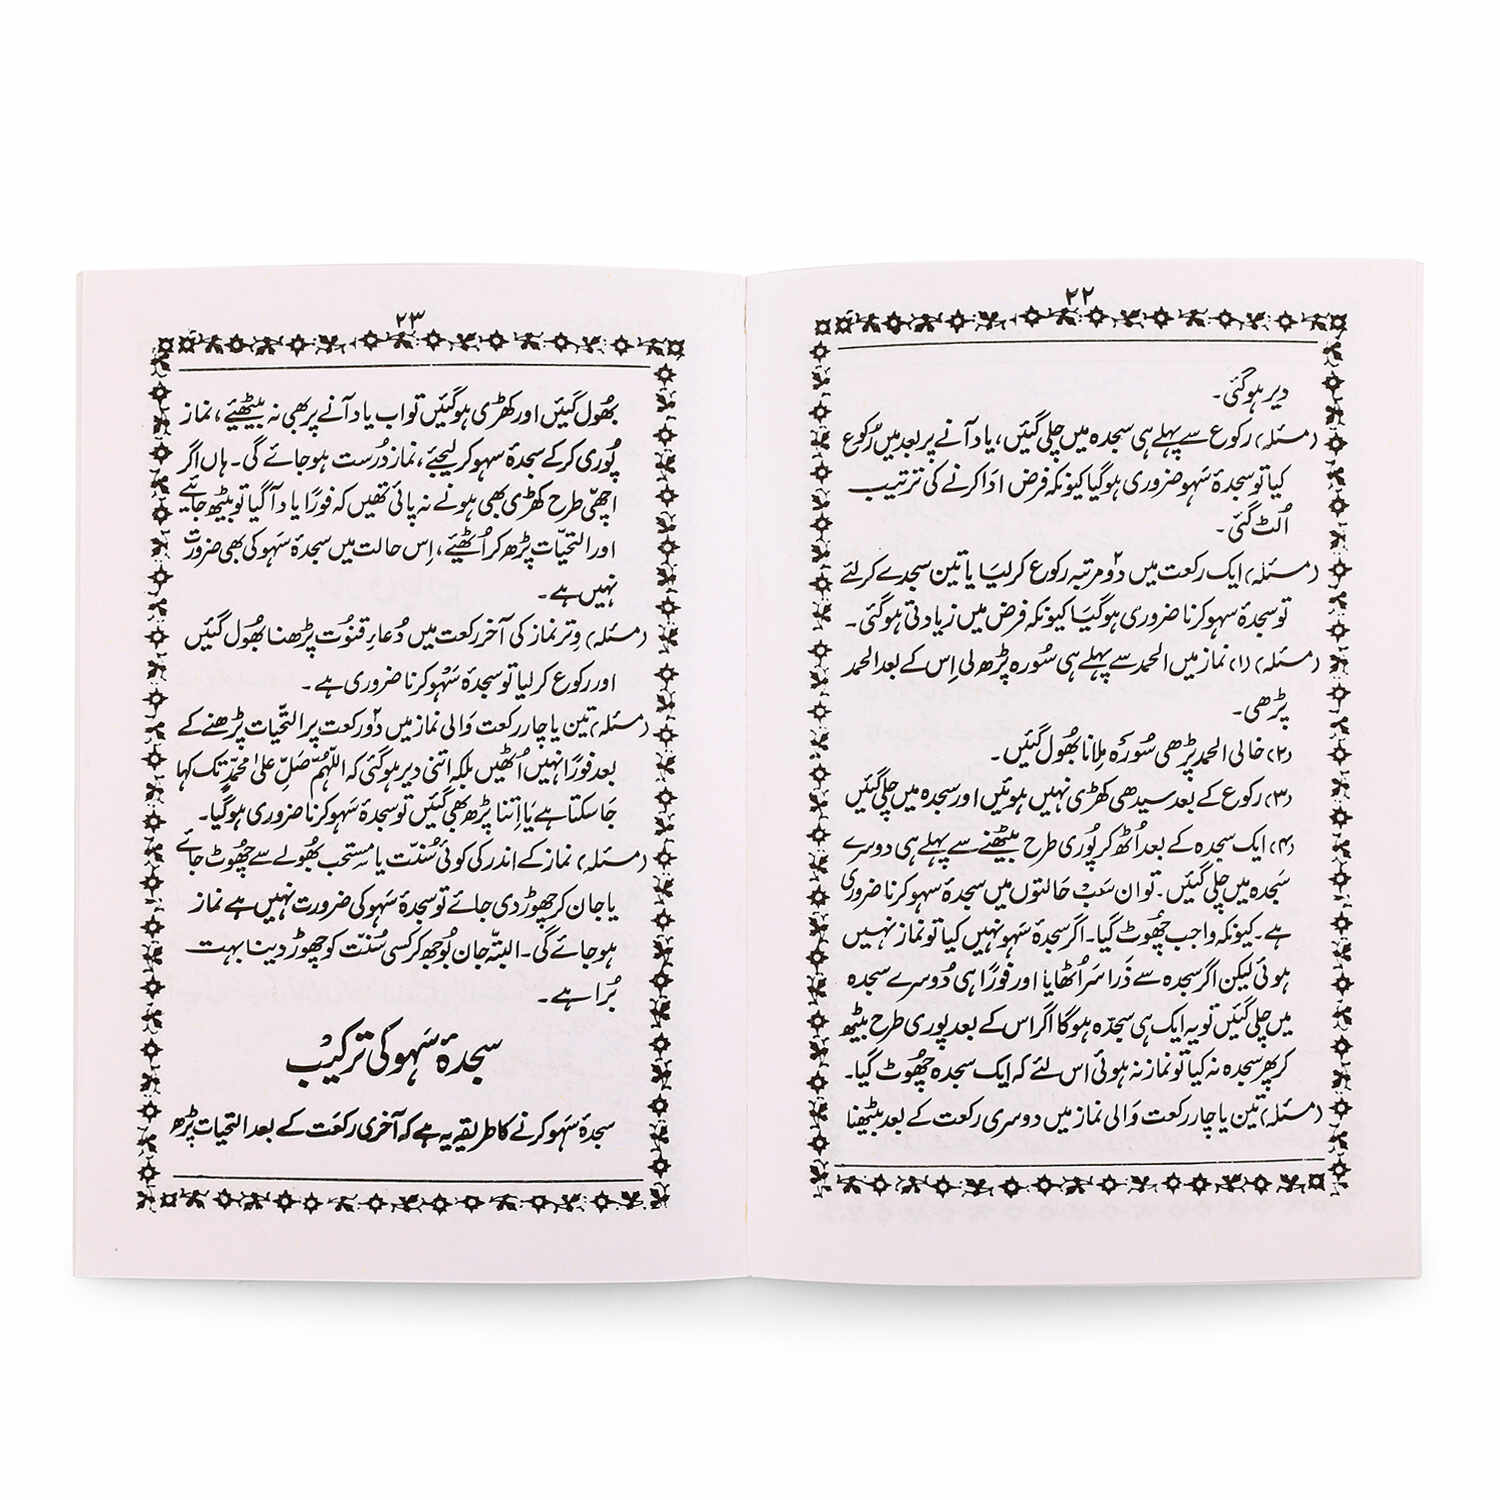 ۲۲
دیر ہوگئی۔
(مسئلہ) رکوع سے پہلے ہی سجدہ میں چلی گئیں، یاد آنے پر بعد میں رُکوع
کیا تو سجدۂ سَہو ضروری ہوگیا کیونکہ فرض ادا کرنے کی ترتیب
اُلٹ گئی۔
(مسئلہ) ایک رکعت میں دو مرتبہ رکوع کرلیَا یا تین سجدے کرلئے
تو سجدۂ سہو کرنا ضروری ہوگیَا کیونکہ فرض میں زیادتی ہوگئی۔
(مسئلہ) (۱) نماز میں الحمد سے پہلے ہی سُورہ پڑھ لی اِس کے بعد الحمد
پڑھی۔
(۲) خالی الحمد پڑھی سُورہ مِلانا بھُول گئیں۔
(۳) رکوع کے بعد سیدھی کھڑی نہیں ہوئیں اور سجدہ میں چلی گئیں
(۴) ایک سجدہ کے بعد اُٹھ کر پُوری طرح بیٹھنے سے پہلے ہی دوسرے
سَجدہ میں چلی گئیں۔ تو ان سَبْ حَالتوں میں سجدۂ سہو کرنا ضروری
ہے۔ کیونکہ واجب چھُوٹ گیا۔ اگر سجدۂ سَہو نہیں کیا تو نماز نہیں
ہوئی لیکن اگر سجدہ سے ذَرا سَر اُٹھایا اور فورًا ہی دُوسرے سجدہ
میں چلی گئیں تو یہ ایک ہی سجدہ ہوگا اگر اس کے بعد پوری طرح بیٹھ
کر پھر سجدہ نہ کیا تو نماز نہ ہوئی اس لئے کہ ایک سجدہ چھُوٹ گیَا۔
(مسئلہ) تین یا چار رکعت وَالی نماز میں دوسری رکعت کے بعد بیٹھنا
۲۳
بھُول گئیں اور کھڑی ہوگئیں تو اب یاد آنے پر بھی نہ بیٹھیئے، نماز
پُوری کرکے سجدۂ سہو کرلیجئے، نماز دُرست ہوجائے گی۔ ہاں اگر
اچھّی طرح کھڑی بھی ہونے نہ پائی تھیں کہ فورًا یاد آگیا تو بیٹھ جائیے
اور التحیّات پڑھ کر اُٹھیئے، اِس حالت میں سجدۂ سَہو کی بھی ضرورت
نہیں ہے۔
(مسئلہ) وِتر نماز کی آخر رکعت میں دُعاءِ قنوُت پڑھنا بھُول گئیں
اور رکوع کرلیا تو سجدۂ سَہْو کرنا ضروری ہے۔
(مسئلہ) تین یا چار رکعت وَالی نماز میں دو رکعت پر التحّیات پڑھنے کے
بعد فورًا نہیں اُٹھیں بلکہ اتنی دیر ہوگئی کہ اللّٰہُمَّ صَلِّ علیٰ محمّدٍ تک کہا
جَا سکتا ہے یَا اِتنا پڑھ بھی گئیں تو سجدۂ سَہو کرنا ضروری ہوگیا۔
(مسئلہ) نماز کے اندر کی کوئی سُنّت یا مستحب بھُولے سے چھُوٹ جائے
یا جان کر چھوڑ دی جائے تو سجدۂ سَہو کی ضرورت نہیں ہے نماز
ہوجائے گی۔ البتّہ جان بُوجھ کر کسی سُنّت کو چھوڑ دینا بہت
بُرا ہے۔
سجدۂ سَہو کی ترکیْب
سجدۂ سَہو کرنے کا طریقہ یہ ہے کہ آخری رکعَت کے بعد التحیات پڑھ